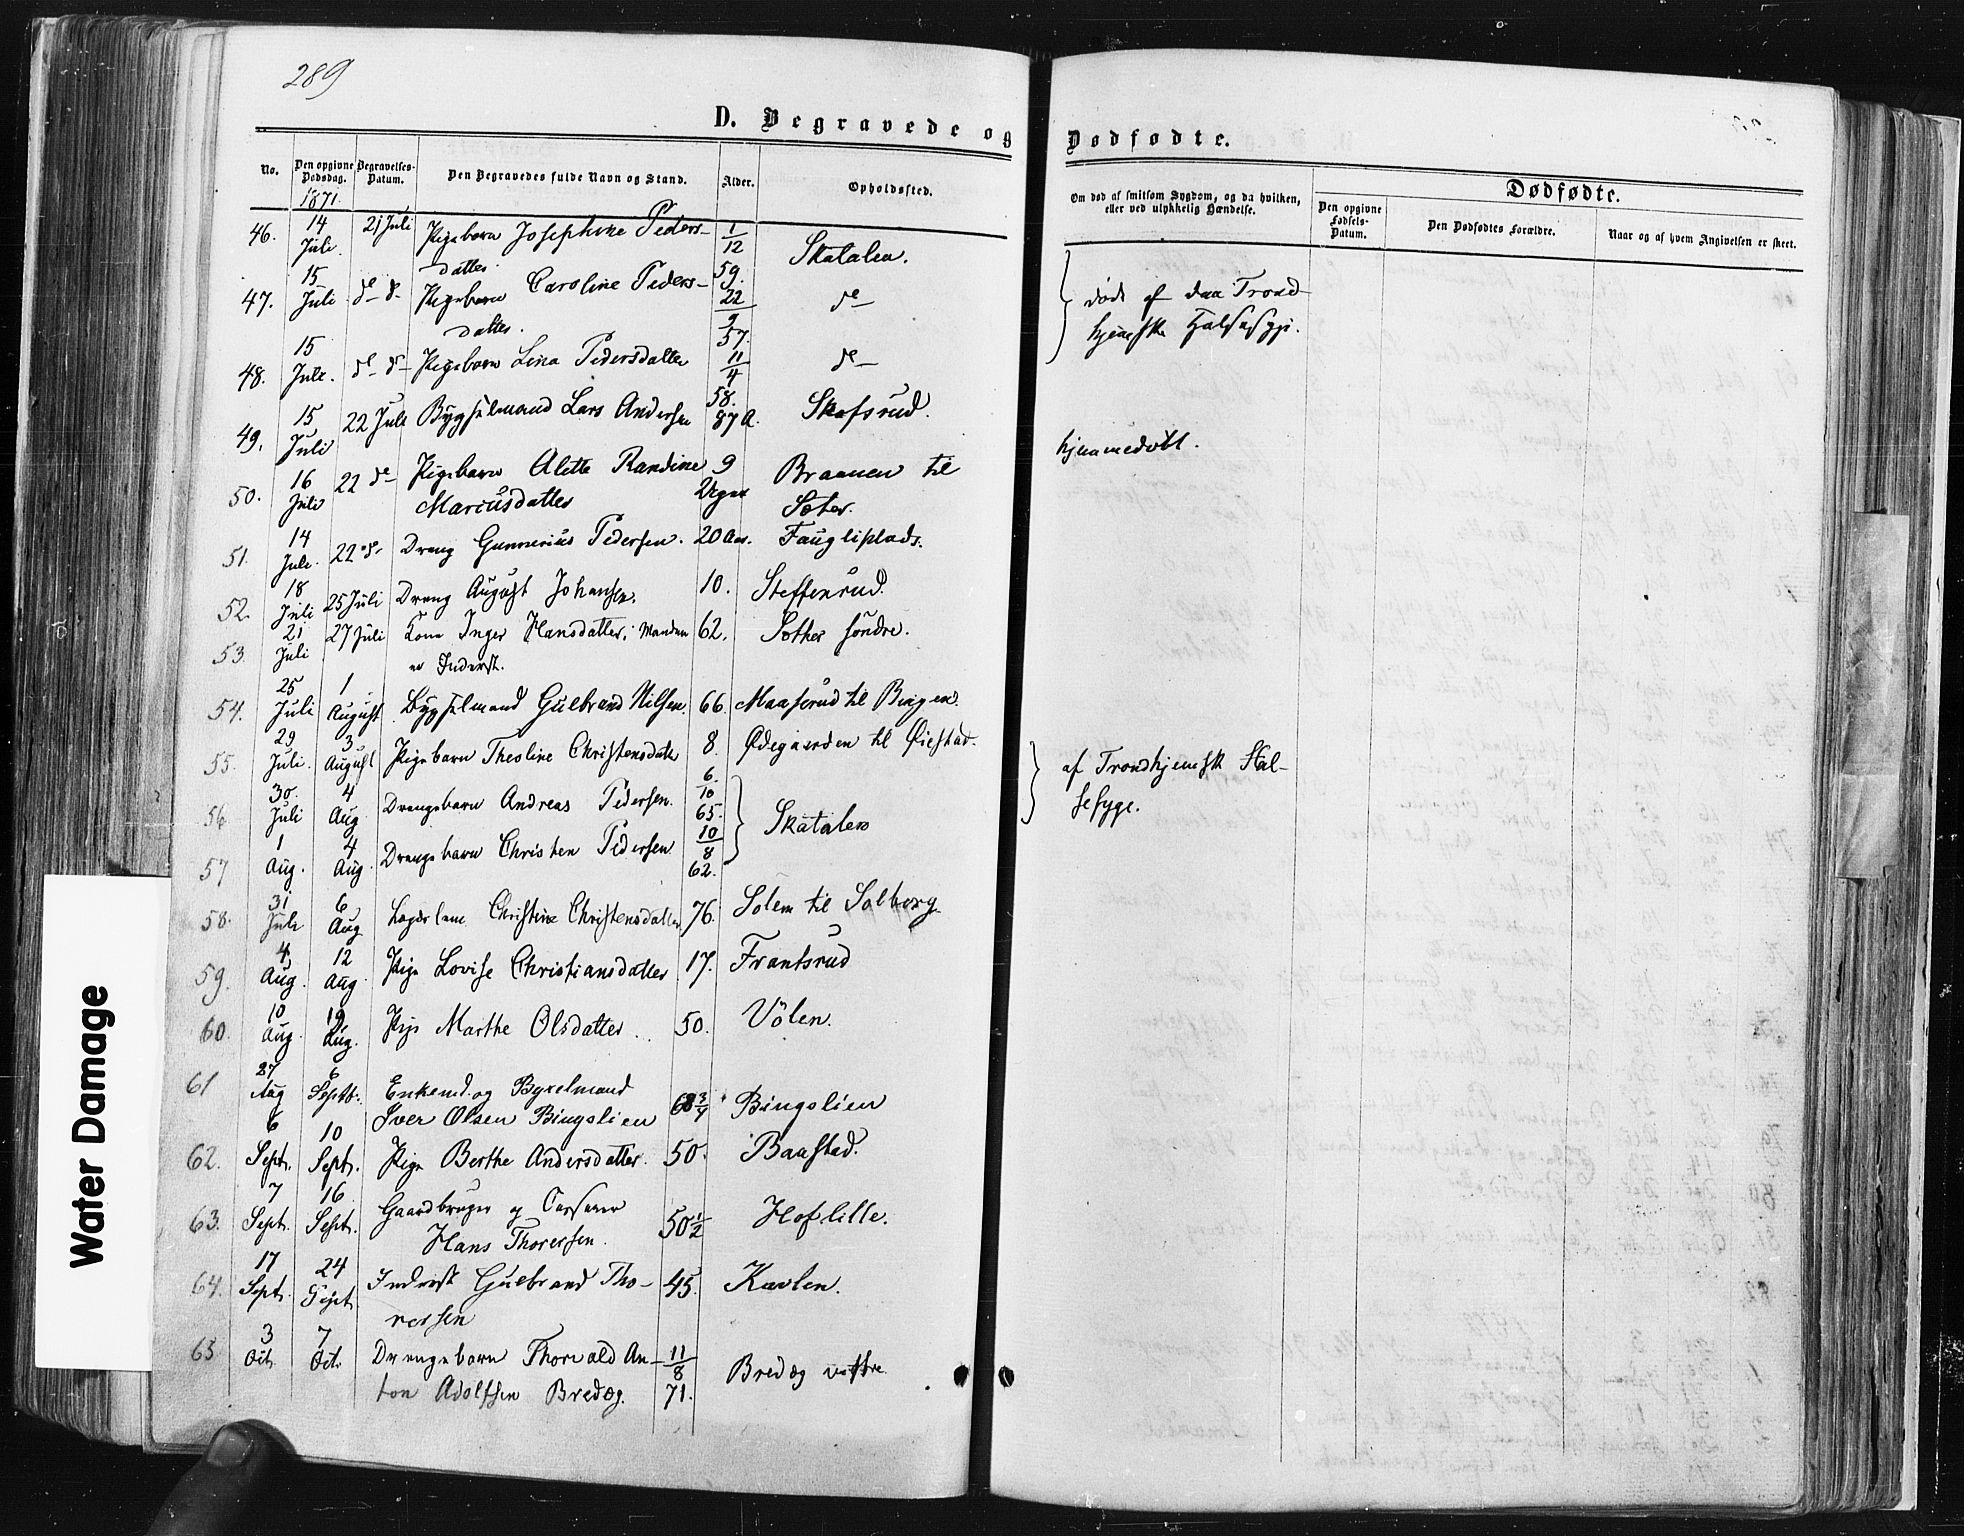 289
D. Begravede og Dødfødte.
No. Den opgivne Dødsdag. Begravelses-Datum. Den Begravedes fulde Navn og Stand. Alder. Opholdssted.
Om død af smitsom Sygdom, og da hvilken, eller ved ulykkelig Hændelse.
Dødfødte.
Den opgivne Fødsels-Datum. Den Dødfødtes Forældre. Naar og af hvem Angivelsen er skeet.
1871.
46. 14 Juli. 21 Juli Pigebarn Josephine Peders- 1/12 59. Skatalen.
datter.
47. 15 Juli d. d. Pigebarn Caroline Peders- 22/9 57. do
datter.
død af den Trond-
hjemske Halssyge.
48. 15 Juli. d. d. Pigebarn Lina Pedersdatter 11/4 58. do
49. 15 Juli 22 Juli Bygselmand Lars Andersen 87 A. Skofsrud.
50. 16 Juli 22 do Pigebarn Alette Randine 9 Braaten til
Marcusdatter Uger Sæther.
hjemmedøbt.
51. 14 Juli. 22 d. Dreng Gunnerius Pedersen. 20 Aar. Faugliplads.
52. 18 Juli 25 Juli Dreng August Johansen. 10. Steffensrud.
53. 21 Juli 27 Juli Kone Inger Hansdatter; Manden 62. Sæther søndre.
er Inderst.
54. 25 Juli 1 August Bygselmand Gulbrand Nilsen. 66. Maaserud til Bingen.
55. 29 Juli. 3 August Pigebarn Theoline Christensdatter 8. Ødegaarden til Øiestad.
56 30. Juli 4 Aug Drengebarn Andreas Pedersen. 6./10 65. Skatalen
57 1 Aug. 4 Aug. Drengebarn Christen Pedersen 10/8 62.
af Trondhjemsk Hal-
sesyge.
58. 31 Juli 6 Aug Lægdslem Christine Christensdatter 76. Solem til Solberg.
59. 4 Aug. 12 Aug. Pige Lovise Christiansdatter 17. Frantsrud
60. 10 Aug. 19 Aug. Pige Marthe Olsdatter 50. Volen.
61 27 Aug 6 Septb. Enkemd. og Byxelmand
Iver Olsen Bingslien 68 3/4 Bingslien
62. 6 Sept. 10 Sept. Pige Berthe Andersdatter. 50. Baastad.
63. 7 Sept. 16 Sept. Gaardbruger og
Hans Thoresen. 50 1/2 Hof lille.
64. 17 Sept. 24 Sept. Inderst Gulbrand Tho- 45. Kavlen.
resen
65 3 Oct. 7 Oct. Drengebarn Thorvald An- 11/8 71. Bredæg vestre.
ton Adolfsen Bredæg.
Water Damage